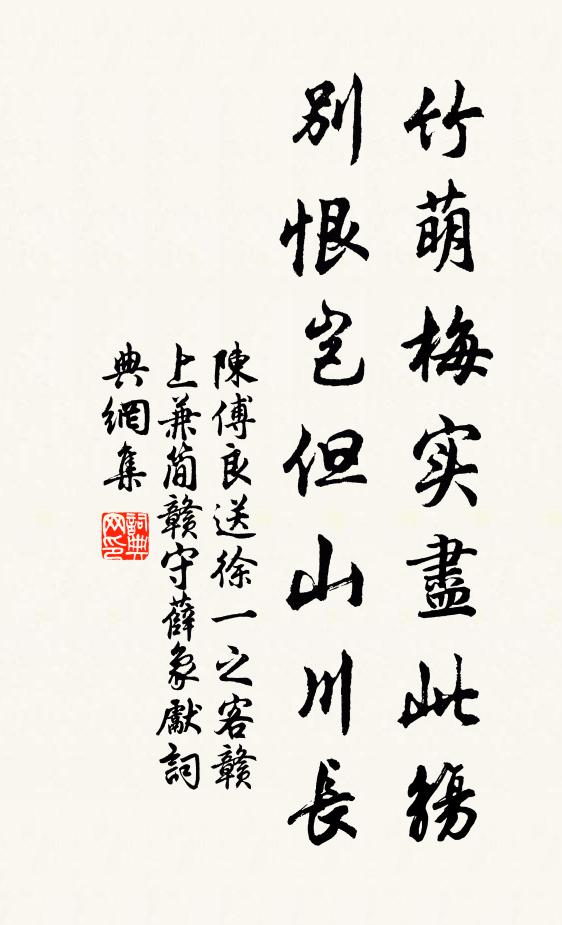 竹萌梅实盡此觴
別恨岂但山川長
陳傅良送徐一之客贛
上兼简贛守薛象獻詞
典網集
詞典
网印